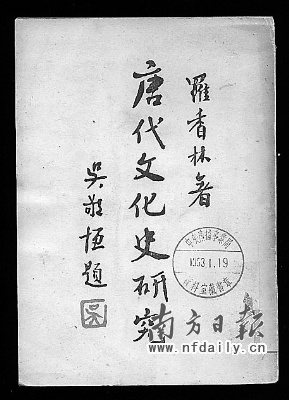 羅香林著
唐代文化史研究
吳敬恆題
1953.1.19
南方日报
www.nfdaily.cn